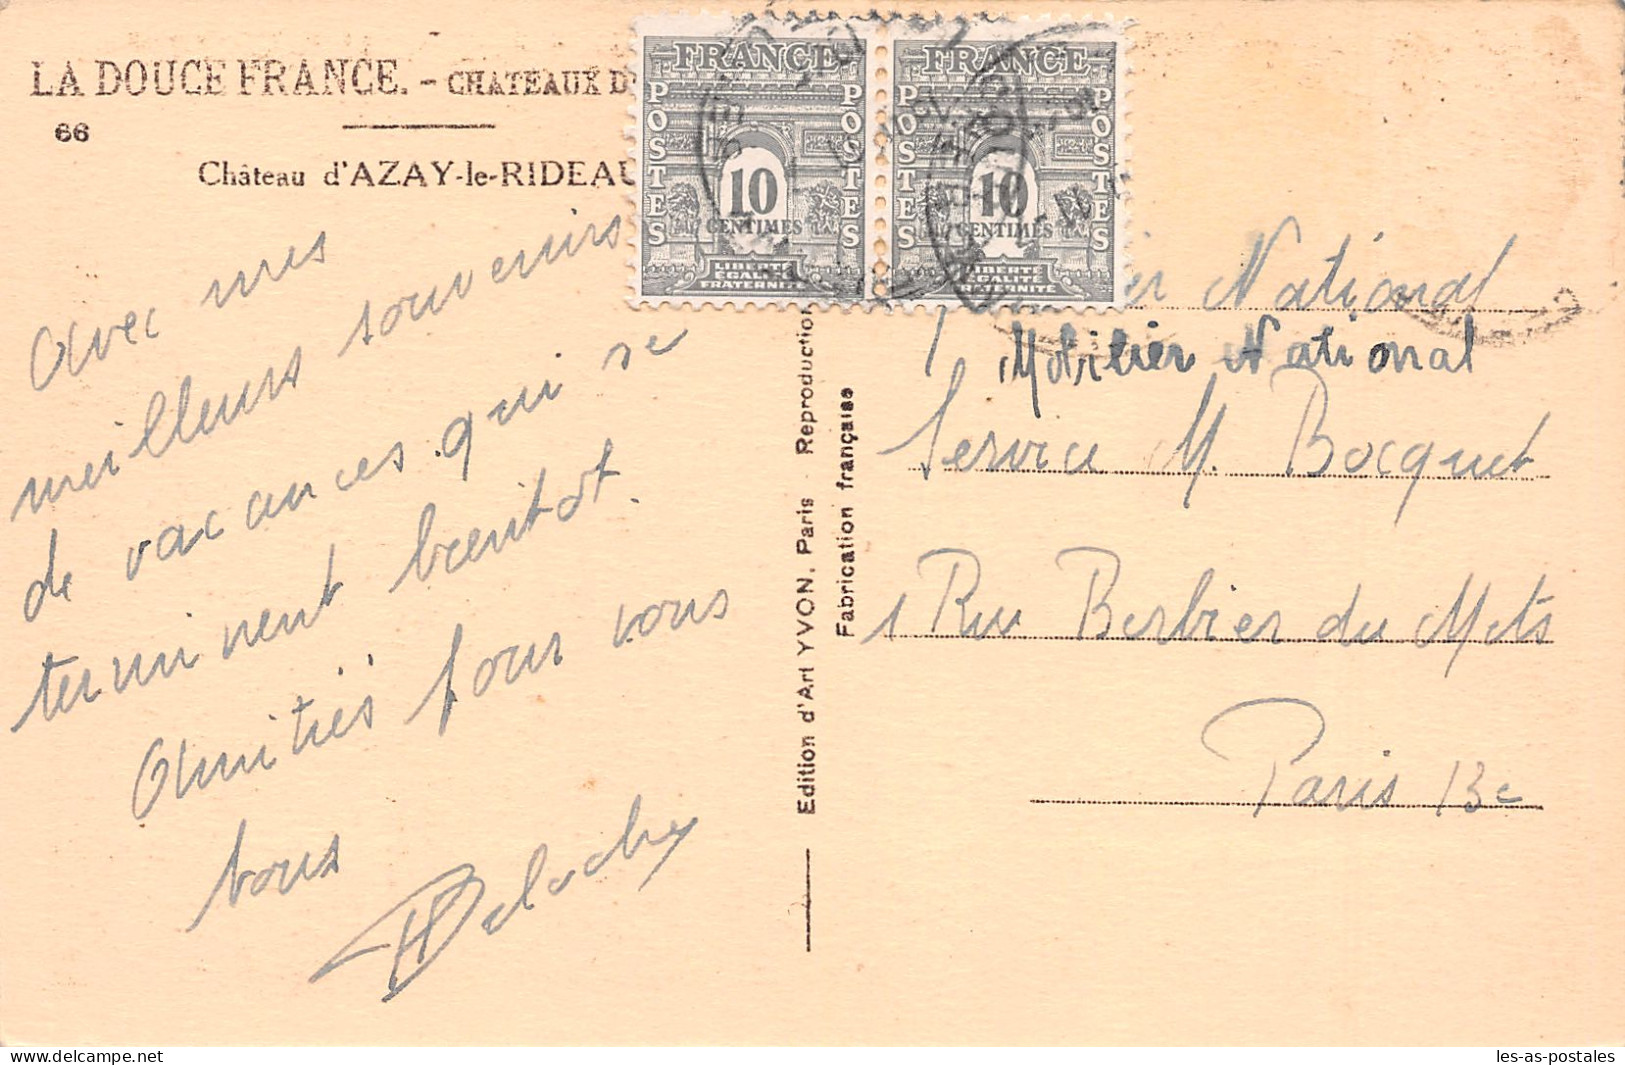 LA DOUCE FRANCE. - CHATEAUX D
66
Château d'AZAY-le-RIDEAU
Avec mes
meilleurs souvenirs
de vacances qui se
terminent bientôt.
Amitiés pour vous
tous
Edition d'Art YVON, Paris Reproduction
Fabrication française
FRANCE
POSTES
POSTES
10
CENTIMES
LIBERTÉ
EGALITÉ
FRATERNITÉ
FRANCE
POSTES
POSTES
10
CENTIMES
LIBERTÉ
EGALITÉ
FRATERNITÉ
ier National
Mobilier National
Service M. Bocquet
1 Rue Berbier du Mets
Paris 13e
delcampe.net
les-as-postales